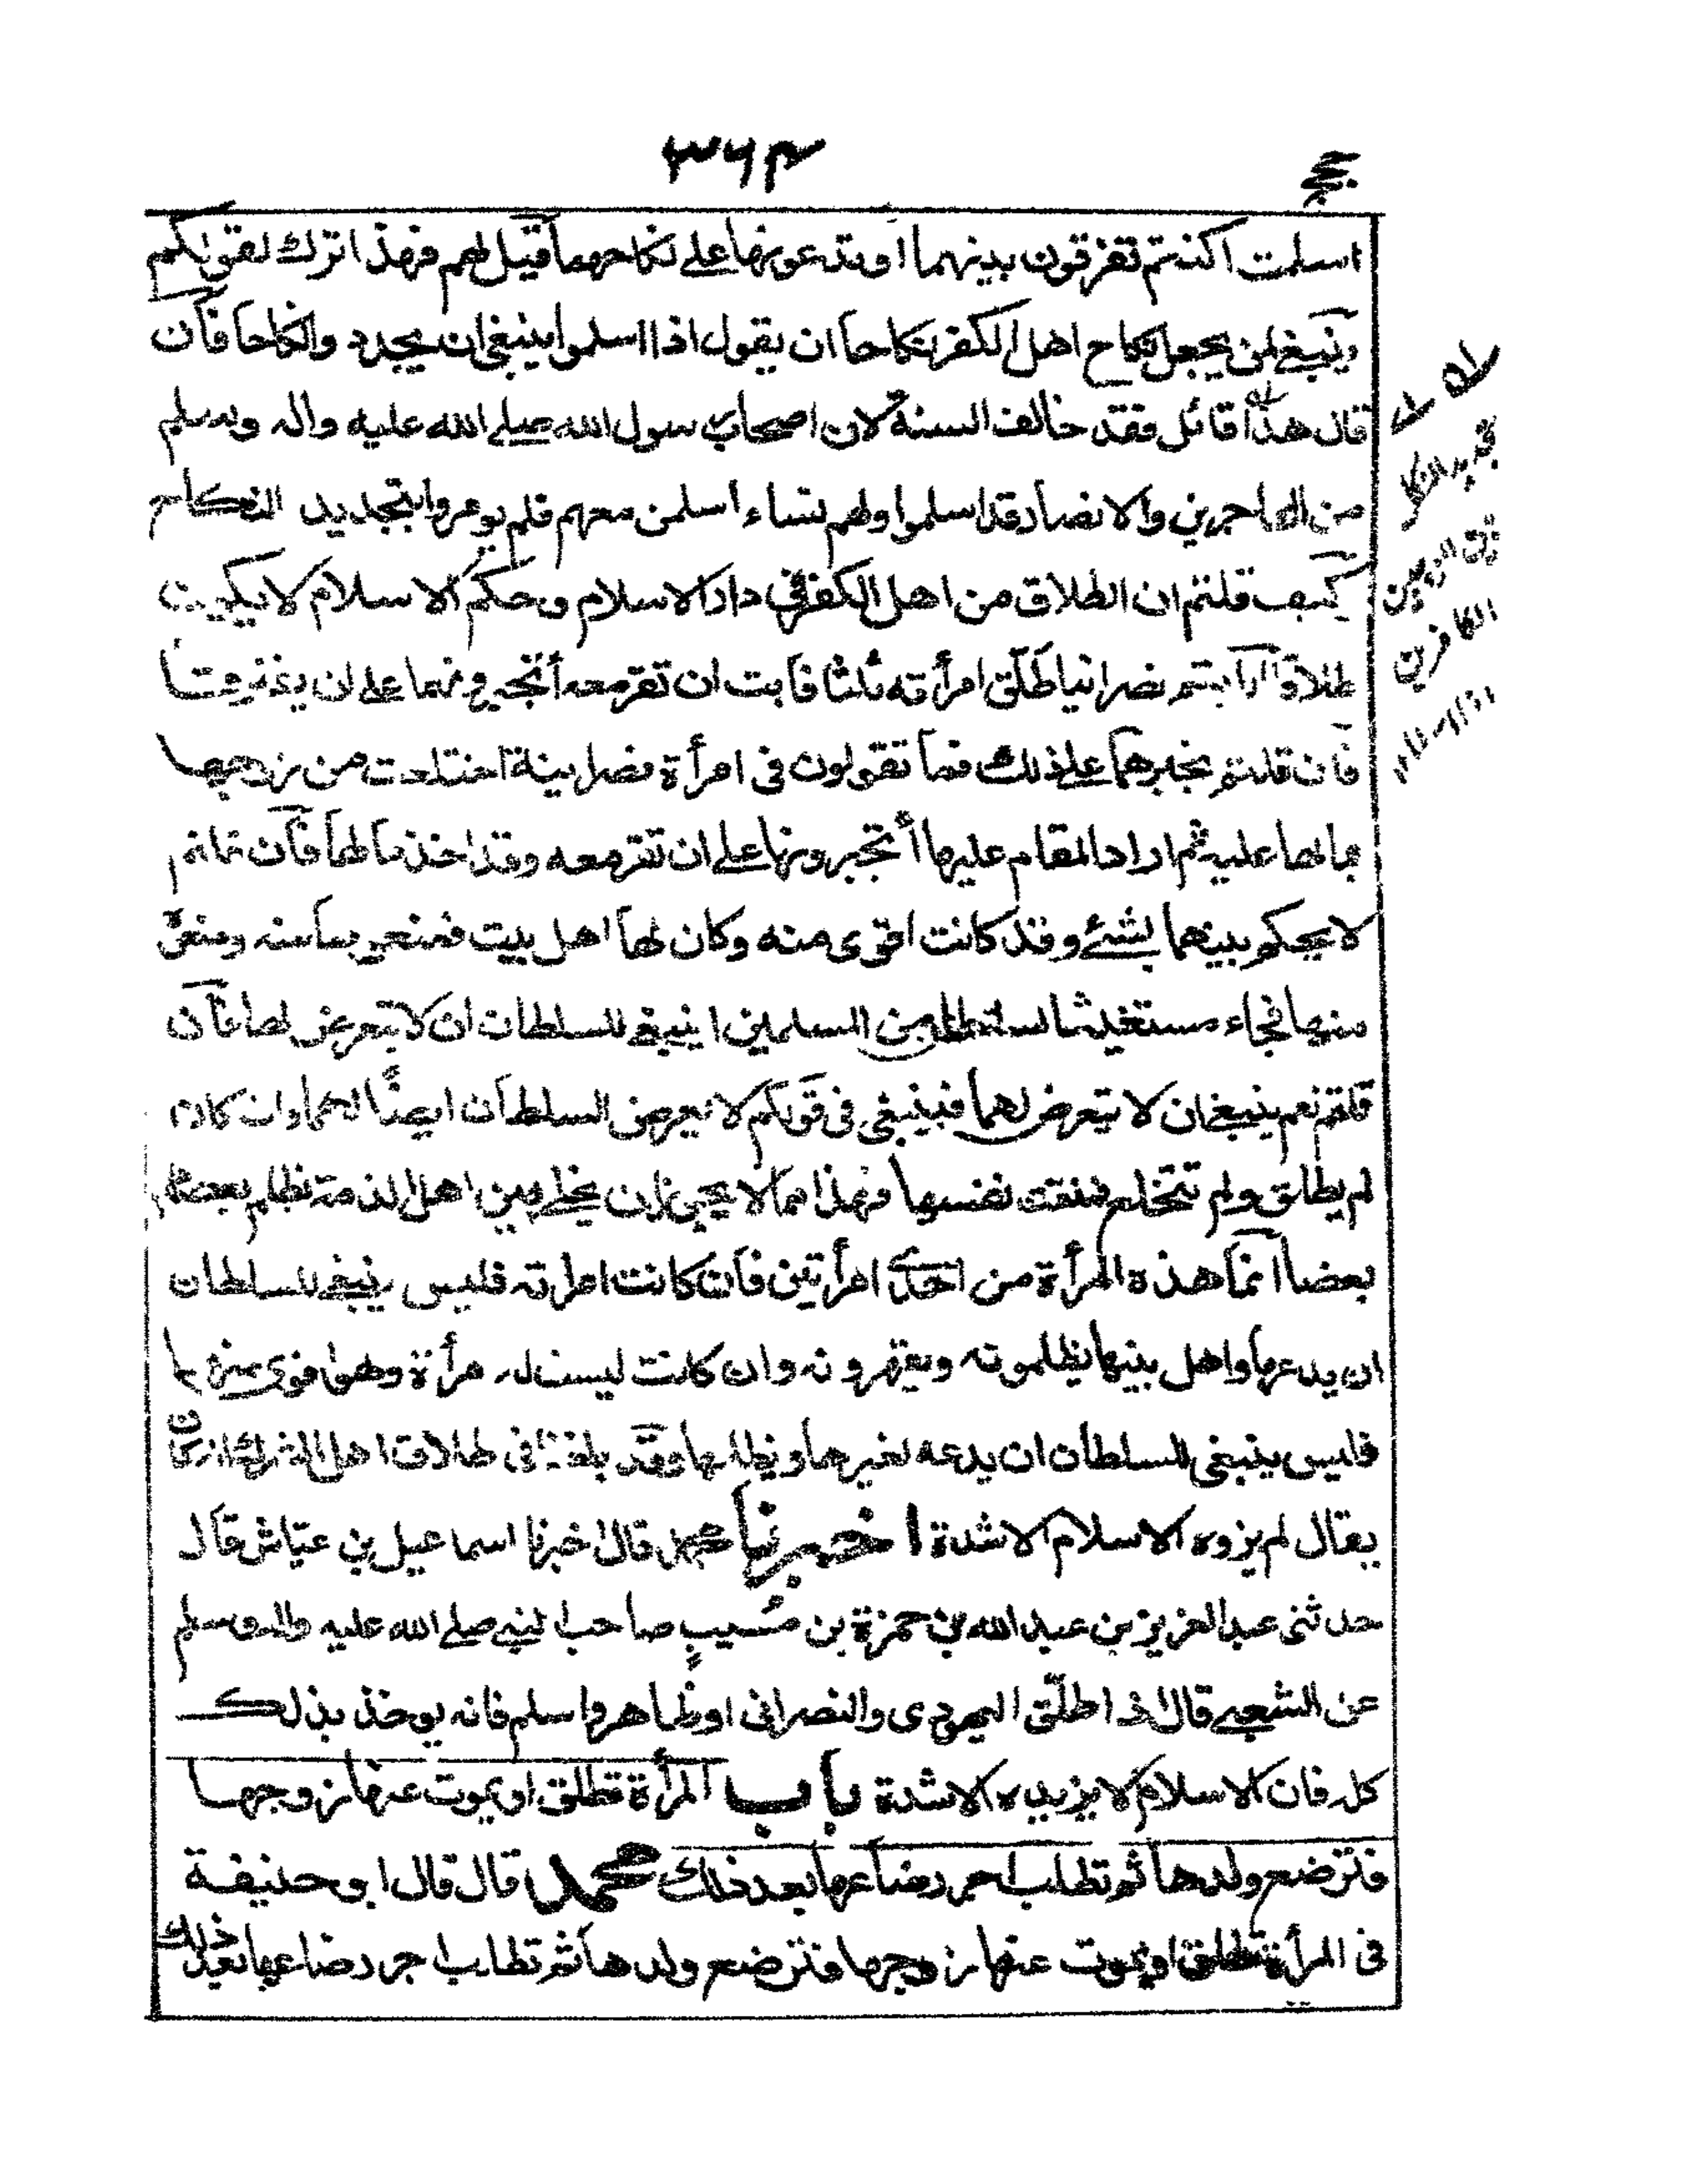 ٣٦٣
حج
اسلمت اكنتم تفرقون بينهما او تدعونها على نكاحهما قيل لهم فهذا ترك لقولكم
وينبغى لمن يجعل نكاح اهل الكفر نكاحا ان يقول اذا اسلموا ينبغى ان يجدد والنكاحا فان
قال هذا قائل فقد خالف السنة لان اصحاب رسول الله صلى الله عليه واله وسلم
من المهاجرين والانصار قد اسلموا ولهم نساء اسلمن معهم فلم يومروا بتجديد النكاح
كيف قلتم ان الطلاق من اهل الكفر فى دار الاسلام وحكم الاسلام لا يكون
طلاقا ارايتم نصرانيا طلّق امرأته ثلثا فابت ان تقر معه أتجبرونهما على ان
فان قلتم نجبرهما على ذلك فما تقولون فى امرأة نصرانية اختلعت من زوجها
بمالها عليه ثم اراد المقام عليها أ تجبرونها على ان تقر معه وقد اخذ مالها فان قلتم
لا يحكم بينهما بشئ وقد كانت اقوى منه وكان لها اهل بيت
منها فجاء مستغيثا من المسلمين اينبغى للسلطان ان لا يتعرض لها فان
قلتم نعم ينبغى ان لا يتعرض لهما فينبغى فى قولكم لا يعرض السلطان ايضًا لهما وان كان
لم يطلق ولم تختلع فمنعت نفسها فهذا مما لا يخلى بين اهل الذمة يظلم بعضهم
بعضا انما هذه المرأة من احدى امرأتين فان كانت امرأته فليس ينبغى للسلطان
ان يدعها واهل بيتها يظلمونه ويقهرونه وان كانت ليست له مرأة وهو اقوى منها
فليس ينبغى للسلطان ان يدعه وقد بلغنا فى طلاق اهل الشرك انه كان
يقال لم يزده الاسلام الا شدة اخبرنا محمد قال اخبرنا اسماعيل بن عيّاش قال
حدثنى عبد العزيز بن عبد الله بن حمزة بن صاحب النبى صلى الله عليه واله وسلم
عن الشعبى قال اذا طلّق اليهودى والنصرانى او ظاهر واسلم فانه يوخذ بذلك
كله فان الاسلام لا يزيده الا شدة باب المرأة تطلق او يموت عنها زوجها
فترضع ولدها ثم تطلب اجر رضاعها بعد ذلك محمد قال قال ابو حنيفة
فى المرأة تطلق او يموت عنها زوجها فترضع ولدها ثم تطلب اجر رضاعها بعد ذلك
الكافرين